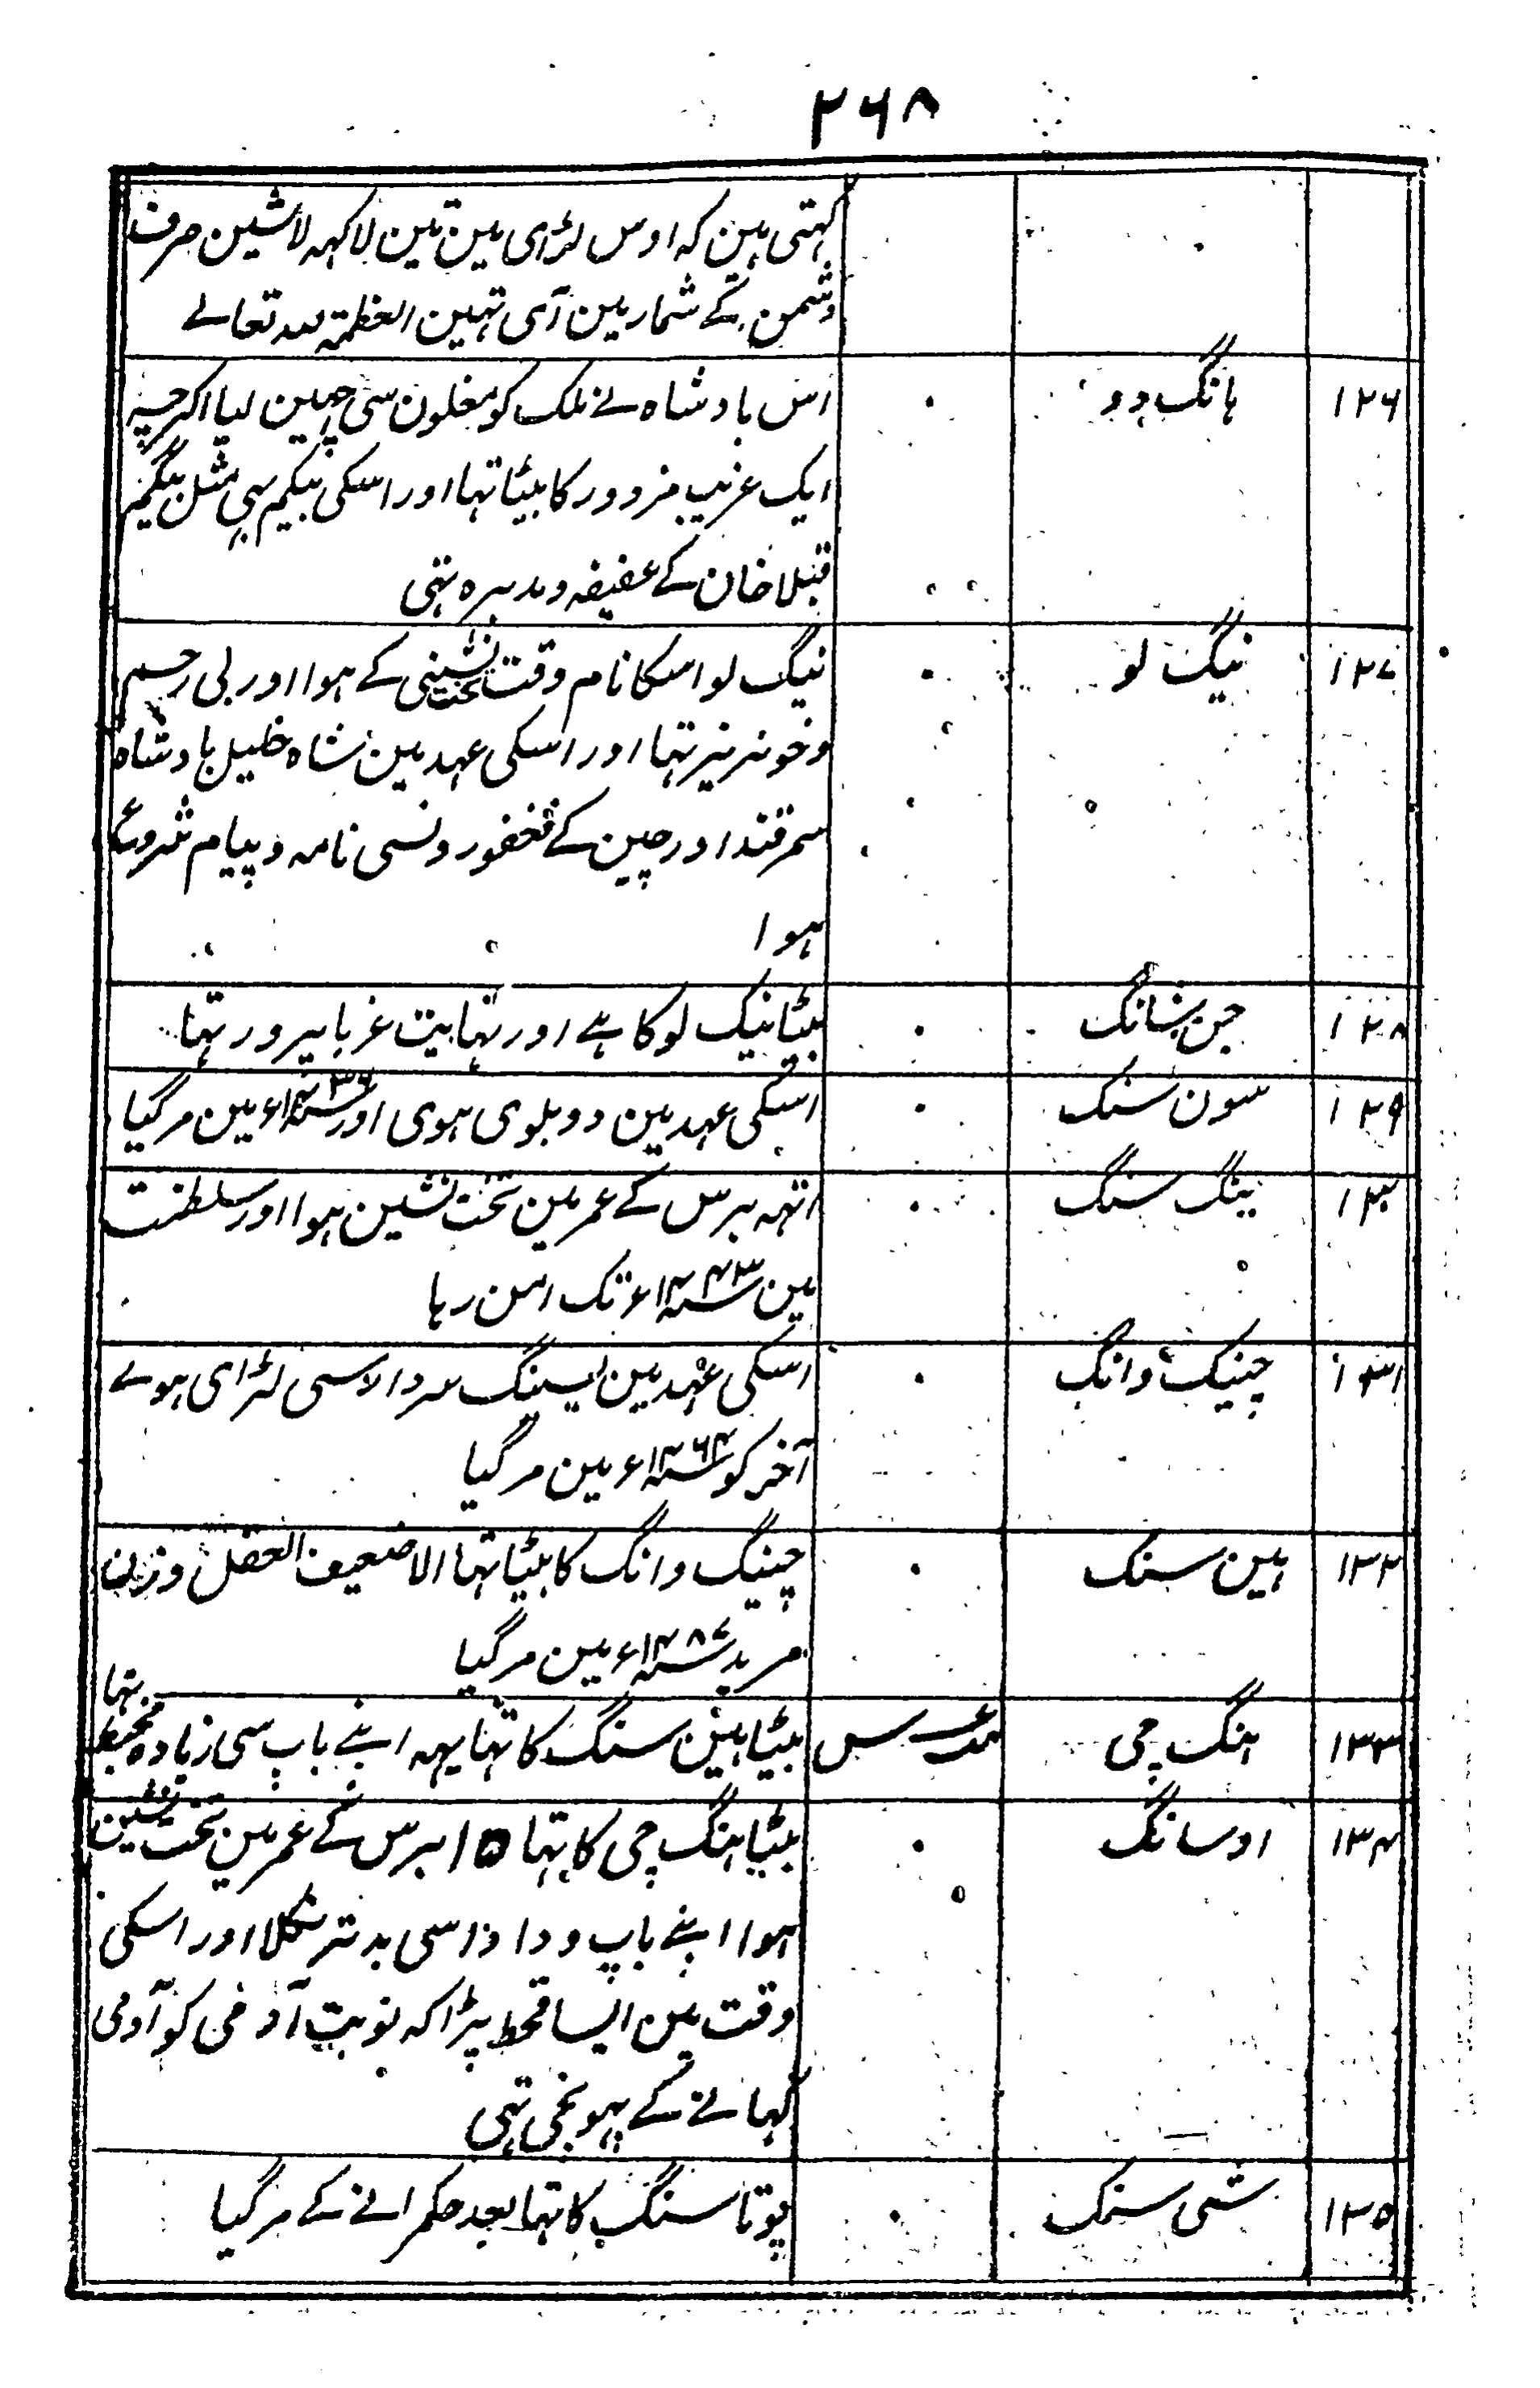 ۲۶۸
کہتی ہین کہ اوس لڑای مین تین لاکہہ لاشین صرف
دشمن کے شمار مین آی تہین العظمۃ للہ تعالے
۱۲۶ ہانگ وو ۰ اس بادشاہ نے ملک کو مغلون سی چہین لیا اگرچہ
ایک غریب مزدور کا بیٹا تہا اور اسکی بیگم بہی مثل بیگم
قبلا خان کے عفیفہ و مدبرہ تہی
۱۲۷ نیگ لو ۰ نیگ لو اسکا نام وقت تخت نشینی کے ہوا اور بی رحم
و خونریز تہا اور اسکی عہد مین شاہ خلیل بادشاہ
سمرقند اور چین کے فغفور ونسی نامہ و پیام شروع
ہوا
۱۲۸ جن شانگ ۰ بیٹا نیگ لو کا ہے اور نہایت غربا پرور تہا
۱۲۹ سون سنگ ۰ اسکی عہد مین دو بلوی ہوی اور سنہ ۱۴۳۶ء مین مر گیا
۱۳۰ ینگ سنگ ۰ اٹہہ برس کے عمر مین تخت نشین ہوا اور سلطنت
مین سنہ ۱۴۴۳ء تک امن رہا
۱۳۱ چینگ وانگ ۰ اسکی عہد مین یسینگ سردار سی لڑای ہوے
آخر کو سنہ ۱۴۶۴ء مین مر گیا
۱۳۲ ہین سنگ ۰ چینگ وانگ کا بیٹا تہا الا ضعیف العقل و زن
مرید سنہ ۱۴۸۷ء مین مر گیا
۱۳۳ ہنگ چی بیٹا ہین سنگ کا تہا یہہ اپنے باپ سی زیادہ مخبط تہا
۱۳۴ اوسانگ ۰ بیٹا ہنگ چی کا تہا ۱۵ برس کے عمر مین تخت نشین
ہوا اپنے باپ و دادا سی بدتر نکلا اور اسکی
وقت مین ایسا قحط پڑا کہ نوبت آدمی کو آدمی
کہانے کے پہونچی تہی
۱۳۵ شی سنگ ۰ پوتا سنگ کا تہا بعد حکمرانے کے مر گیا